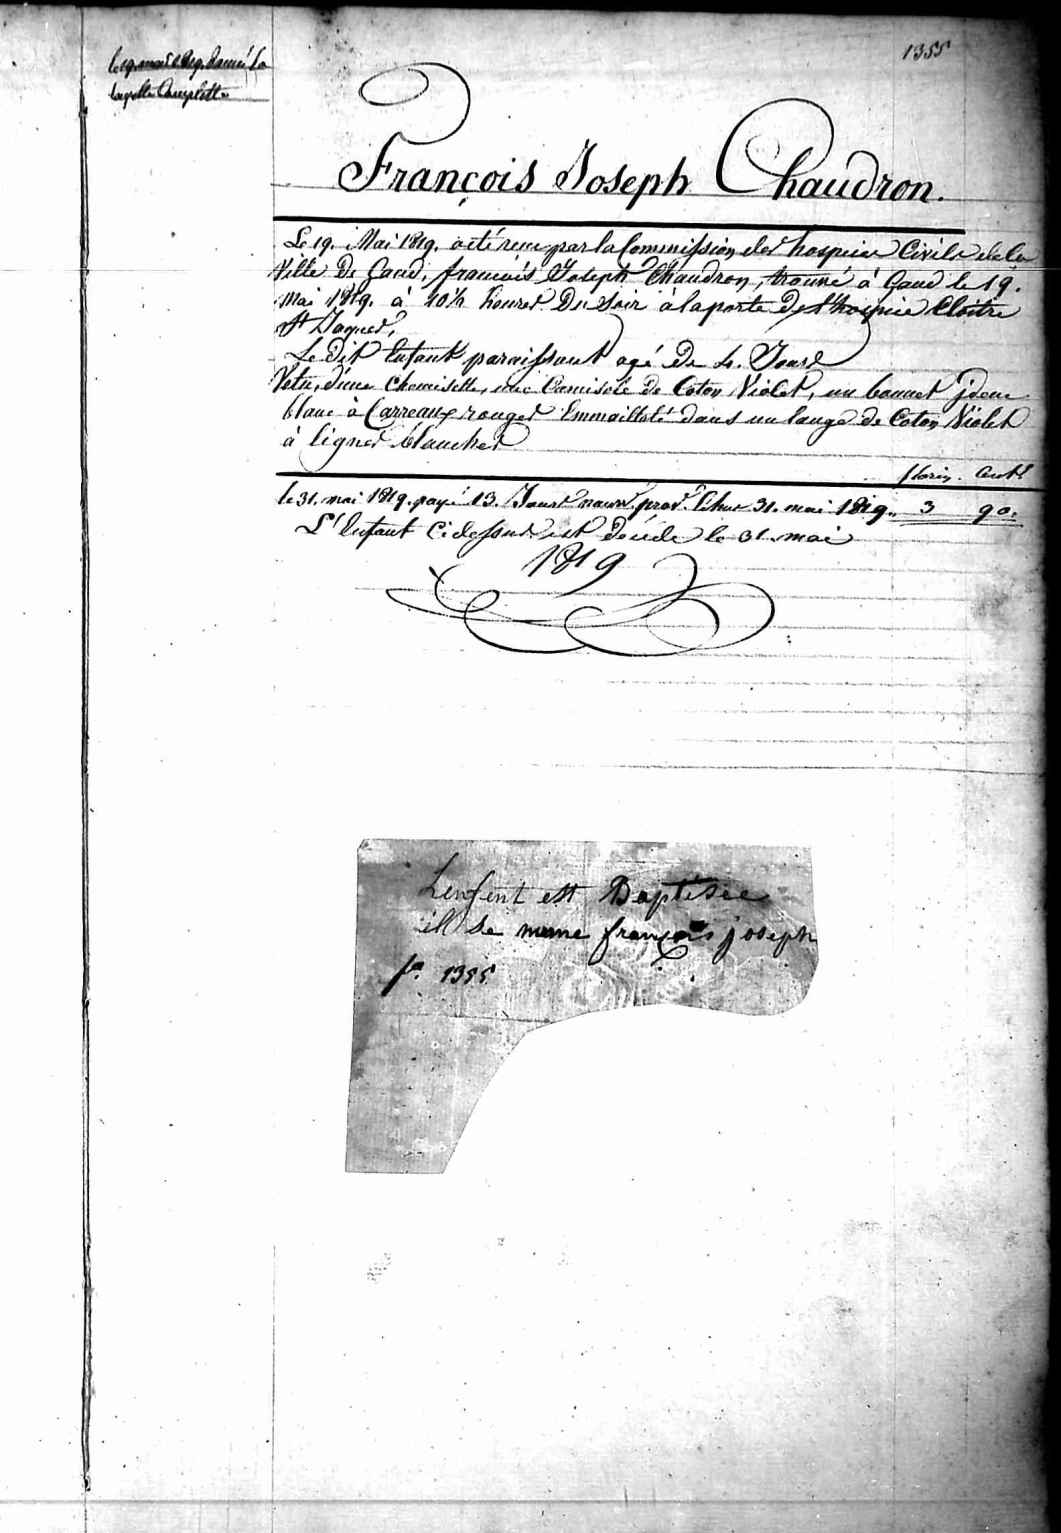 1355
le 19. mai 1819. donné la
layette Complette
François Joseph Chaudron.
Le 19. Mai 1819. a eté reçu par la Commission des hospices Civils de la
Ville de Gand, francois Joseph Chaudron, trouvé à Gand le 19.
Mai 1819. à 10½ heures Du Soir à la porte De l'hospice Cloitre
St Jaques,
Le dit Enfant paraissant agé De 4. Jours
Vetu, d'une Chemisette, une Camisole de Coton Violet, un bonnet jdem
blanc à Carreaux rouges Emmailloté dans un lange de Coton Violet
à lignes blanches
florin. Cents
le 31. mai 1819. payé 13. Jours nourr. prov. Echus 31. mai 1819.. 3 90.
L'Enfant Cidessus est Décédé le 31. mai
1819
Lenfent est Baptisee
il se nome françois joseph
fo. 1355